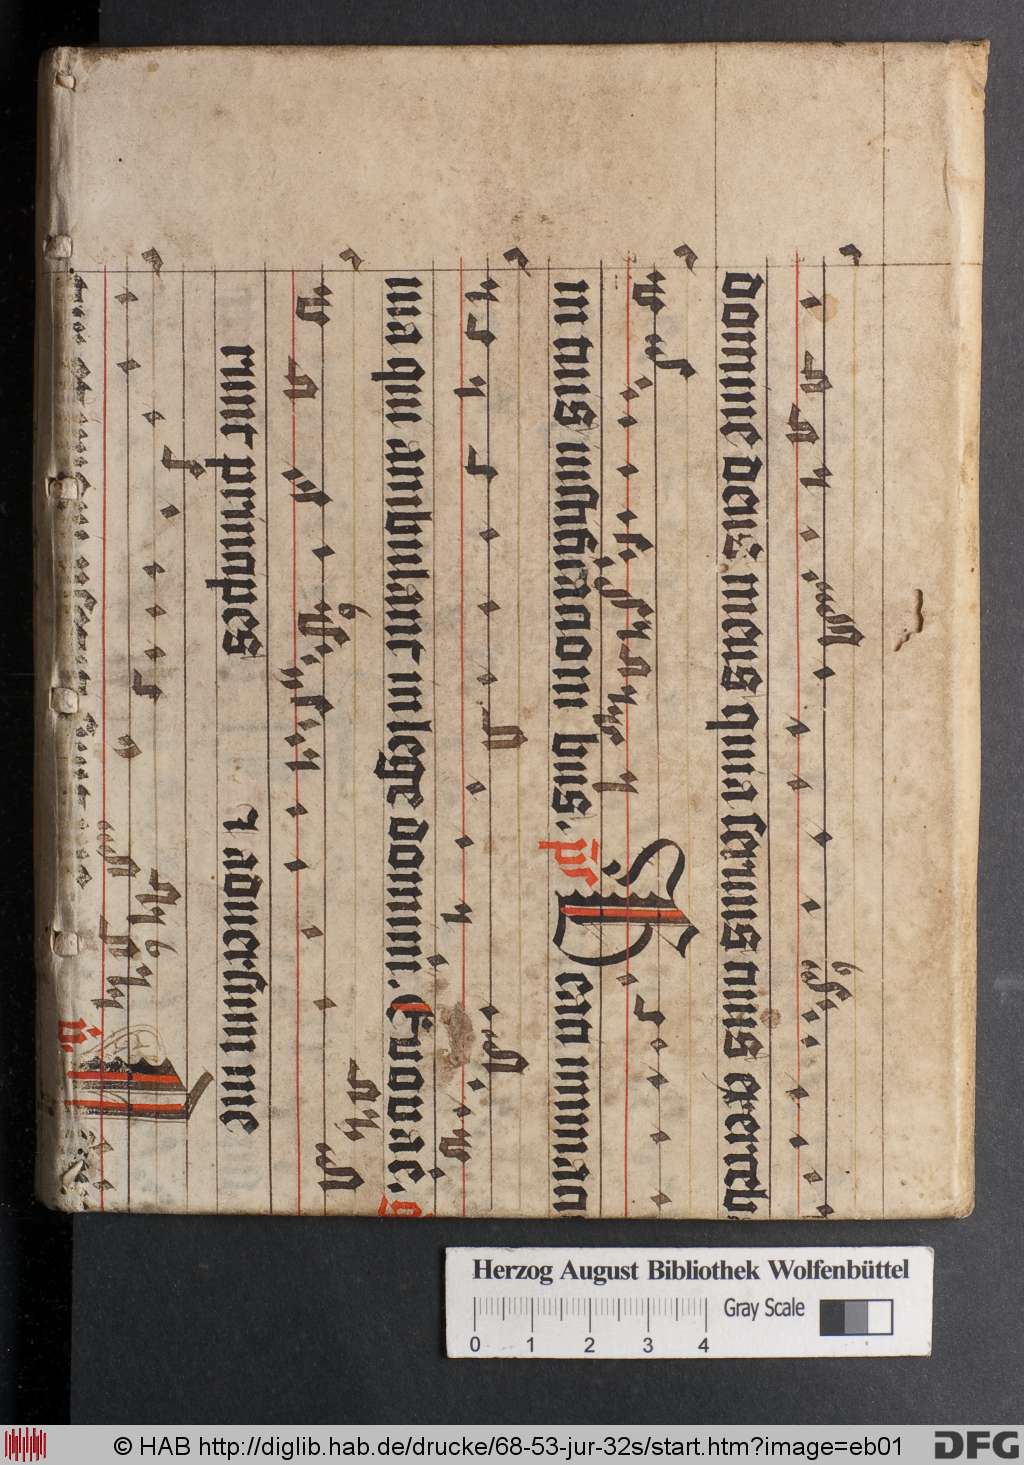 domine deus meus quia seruus tuus exerceb
in tuis iustificacioni bus. ps Beati inmacu
uia qui ambulant in lege domini. Euouae.
runt principes ⁊ aduersum me
v.
Herzog August Bibliothek Wolfenbüttel
0 1 2 3 4 Gray Scale
© HAB http://diglib.hab.de/drucke/68-53-jur-32s/start.htm?image=eb01
DFG